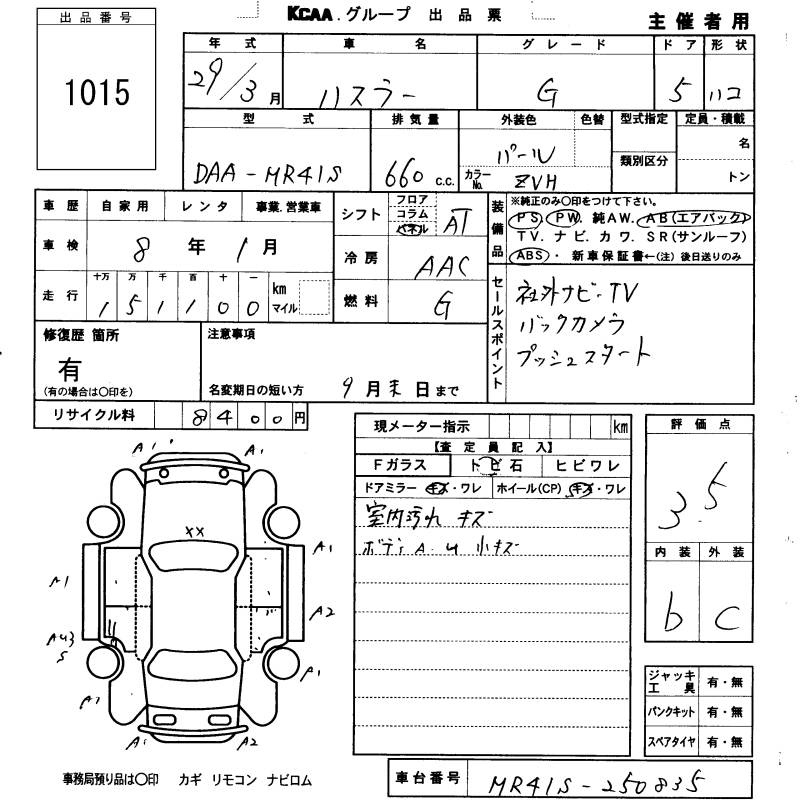 出品番号
1015
KCAA.グループ 出品票
主催者用
年式 車名 グレード ドア 形状
29/3月 ハスラー G 5 ハコ
型式 排気量 外装色 色替 型式指定 定員・積載
DAA-MR41S 660 c.c. パール 名
カラーNo. ZVH 類別区分 トン
車歴 自家用 レンタ 事業.営業車
車検 8年 1月
走行 十万 万 千 百 十 一
1 5 1 1 0 0 km マイル
シフト フロア コラム パネル AT
冷房 AAC
燃料 G
装備品
※純正のみ○印をつけて下さい。
PS. PW. 純AW. AB(エアバック)
TV. ナビ. カワ. SR(サンルーフ)
ABS・ 新車保証書←(注)後日送りのみ
セールスポイント
社外ナビ・TV
バックカメラ
プッシュスタート
修復歴 箇所
有
(有の場合は○印を)
注意事項
名変期日の短い方 9月末日まで
リサイクル料 8400円
現メーター指示 km
【査定員記入】
Fガラス トビ石 ヒビワレ
ドアミラー キズ・ワレ ホイール(CP) キズ・ワレ
室内汚れ キズ
ボディA.U 小キズ
評価点
3.5
内装 外装
b C
ジャッキ工具 有・無
パンクキット 有・無
スペアタイヤ 有・無
A1 A1
XX
A1
A1 A2
AU3
S
A1
A1
A1 A2
事務局預り品は○印 カギ リモコン ナビロム
車台番号 MR41S-250835